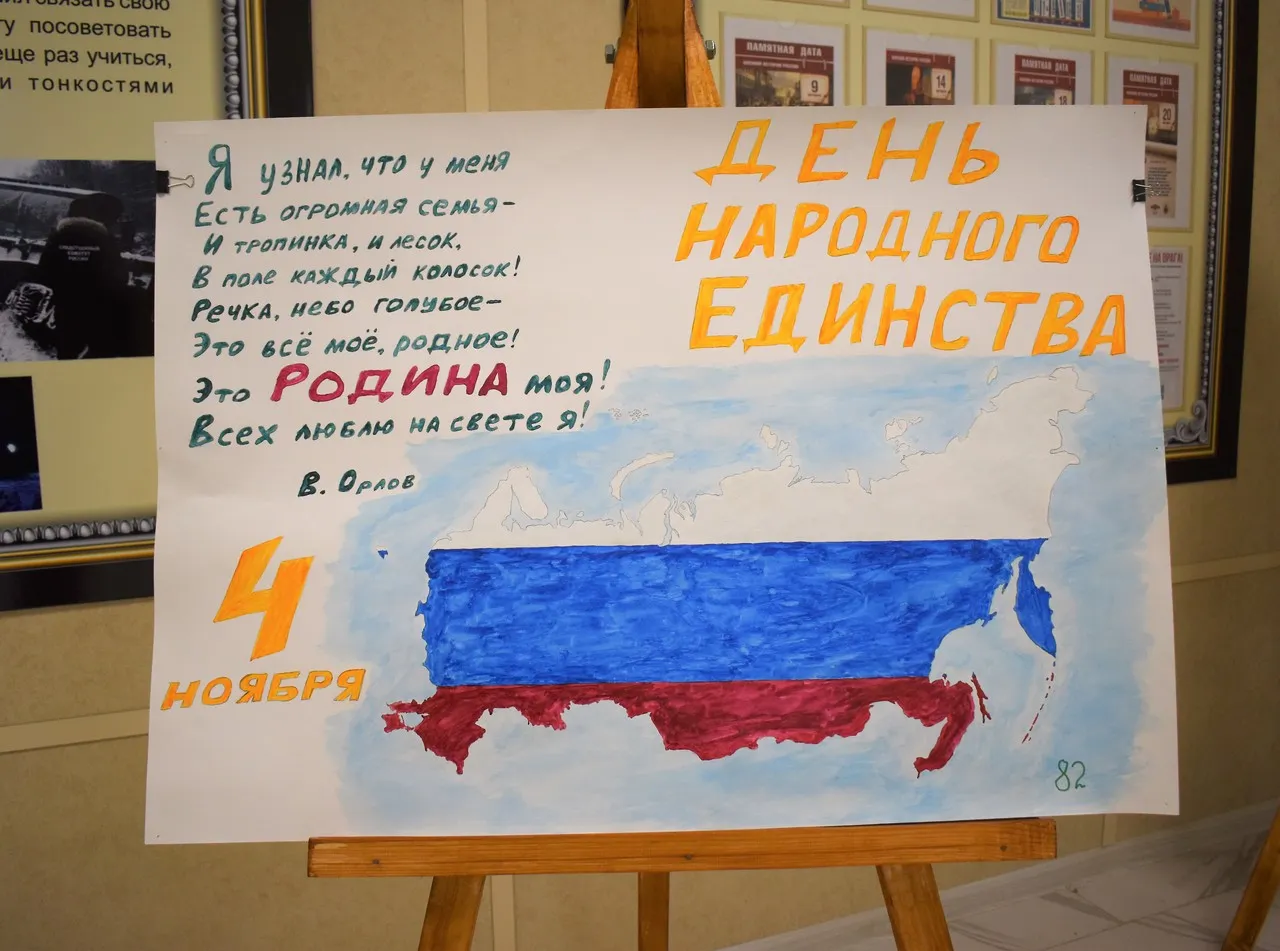 связать свою
посоветовать
еще раз учиться,
и тонкостями
СЛЕДСТВЕННЫЙ
КОМИТЕТ
РОССИИ
ПАМЯТНАЯ ДАТА
9
14
ПАМЯТНАЯ ДАТА
18
ПАМЯТНАЯ ДАТА
20
Я узнал, что у меня
Есть огромная семья-
И тропинка, и лесок,
В поле каждый колосок!
Речка, небо голубое-
Это всё моё, родное!
Это РОДИНА моя!
Всех люблю на свете я!
В. Орлов
ДЕНЬ
НАРОДНОГО
ЕДИНСТВА
4
НОЯБРЯ
82